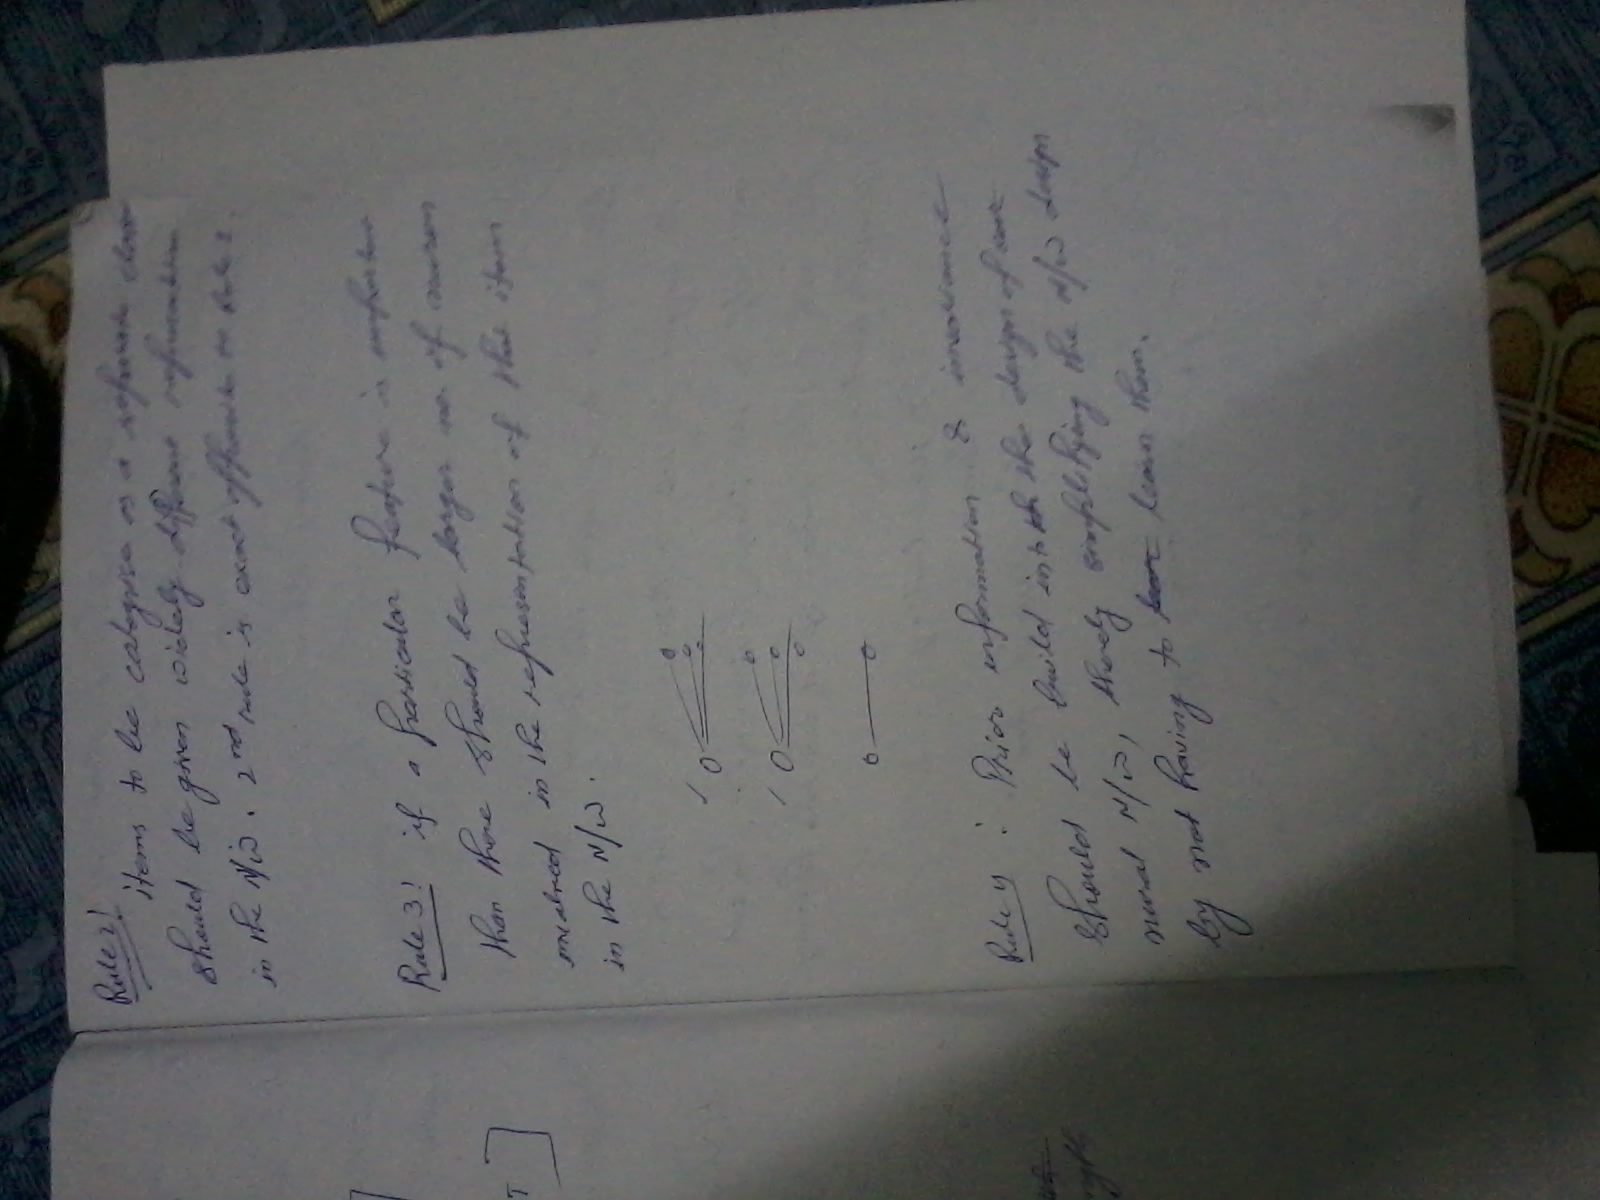 Rule 2! items to be categorise as a separate class
should be given widely different representation
in the N/W. 2nd rule is exact opposite to rule 1.
Rule 3! if a particular feature is important
then there should be larger no of neuron
involved in the representation of the item
in the N/W.
Rule 4: Prior information & invariance
should be build into the the design of
neural N/W, thereby simplifying the N/W design
by not having to learn them.